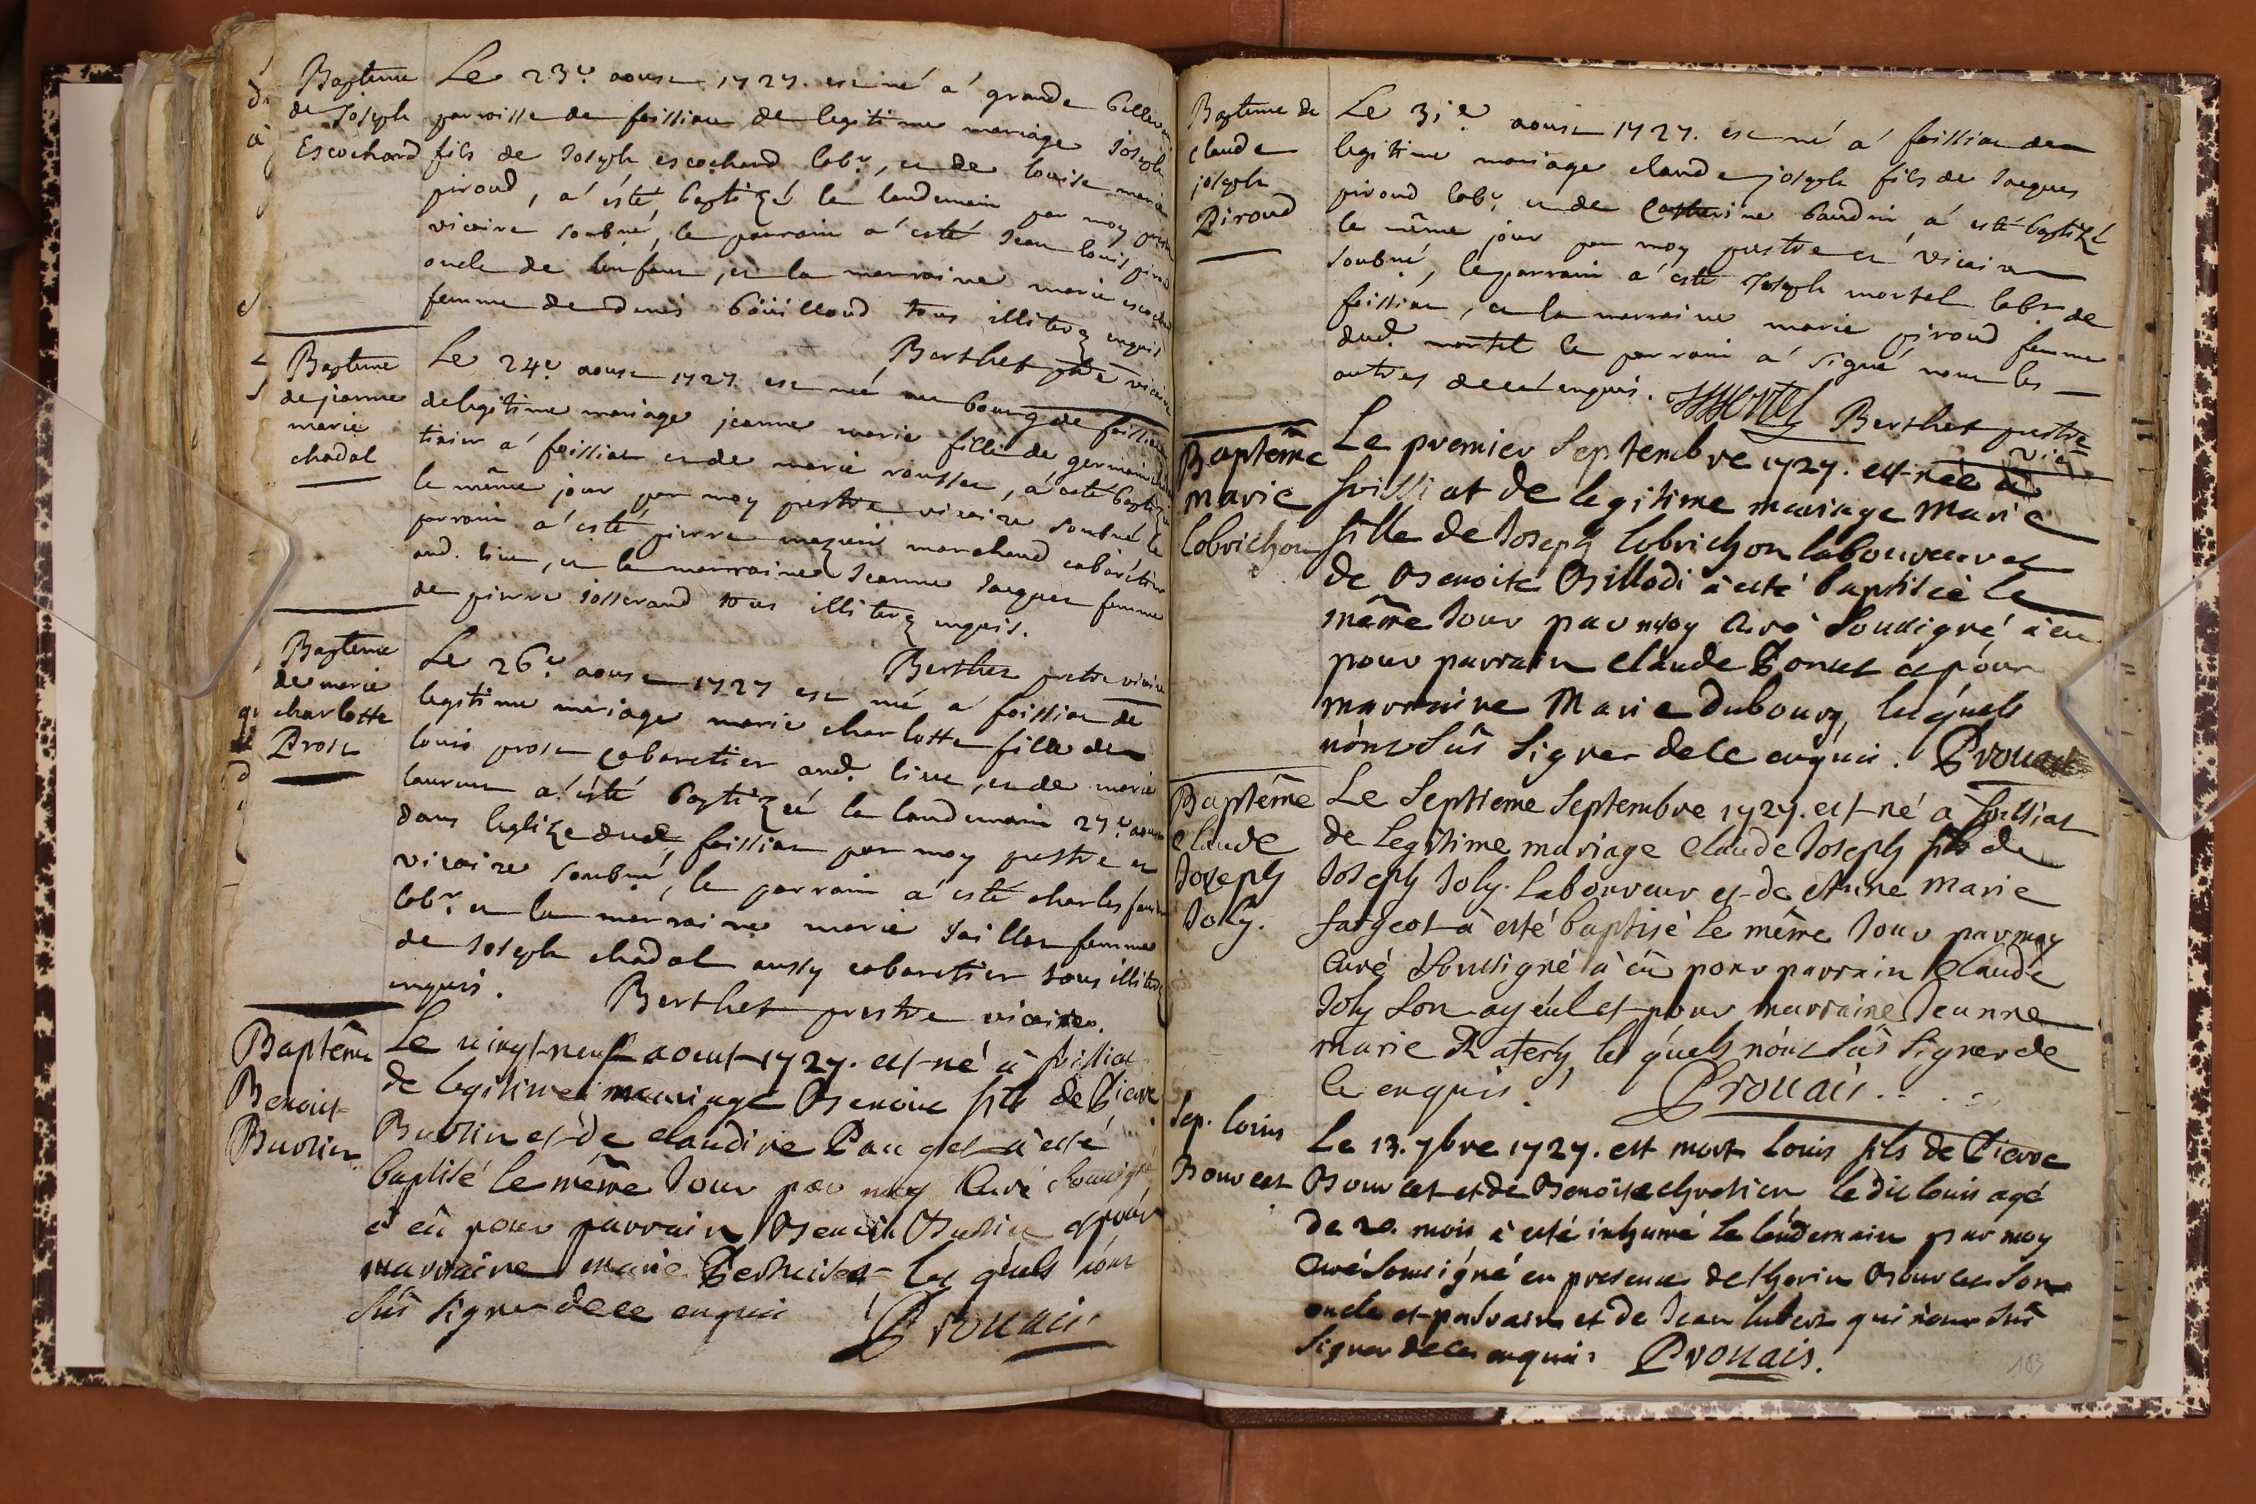 Bapteme
de Joseph
Escochard
Le 23e. aoust 1727. est né a' grande
parroisse de foissiat de legitime mariage Joseph
fils de Joseph escochard labr., et de louise marie
piroud, a' esté baptizé le landemain par moy prestre
vicaire soubné, le parrain a' esté Jean louis piroud
oncle de l'enfant, et la marraine marie escochard
femme de denis bouilloud tous illiterez enquis
Berthet ptre vicaire
Bapteme
de jeanne
marie
chadal
Le 24e. aoust 1727. est née au bourg de foissiat
de legitime mariage jeanne marie fille de germain
a' foissiat et de marie rousset, a' esté baptizée
le même jour par moy prestre vicaire soubné le
parrain a' esté pierre marchand cabaretier
aud. lieu, et la marraine Jeanne Jacquet femme
de pierre Josserand tous illiterez enquis.
Berthet prestre vicaire
Bapteme
de marie
charlotte
Prost
Le 26e. aoust 1727 est née a' foissiat de
legitime mariage marie charlotte fille de
louis prost cabaretier aud. lieu, et de marie
laurent a' esté baptizée le landemain 27e. aoust
dans leglize dud foissiat par moy prestre et
vicaire soubné, le parrain a' esté charles
labr. et la marraine marie Jaillet femme
de Joseph chadal aussy cabaretier tous illiterez
enquis. Berthet prestre vicaire.
Baptême
Benoist
Buvlin
Le vingt-neuf aout 1727. est né à foissiat
de legitime mariage Benoit fils de Pierre
Buvlin et de claudine Pauget à esté
baptisé le même Jour par moy Curé sousigné
à eü pour parrain Benoit Buvlin et pour
marraine marie les quels n'ont
sûs signer de ce enquis Provais
Bapteme de
claude
joseph
Piroud
Le 31e. aoust 1727. est né a' foissiat de
legitime mariage claude joseph fils de Jacques
piroud labr. et de Catherine baudin, a' esté baptizé
le même jour par moy prestre et vicaire
soubné, le parrain a' esté Joseph mortel labr de
foissiat, et la marraine marie piroud femme
dud. mortel le parrain a' signé non les
autres de ce enquis. Mortel Berthet prestre
vic
Baptême
Marie
lobrichon
Le premier Septembre 1727. est née à
foissiat de legitime mariage Marie
fille de Joseph lobrichon laboureur et
de Benoite Billodi à esté baptisée le
même Jour par moy Curé Sousigné, à eu
pour parrain claude Bonet et pour
marraine Marie Dubourg, lesquels
nònt sûs signer de ce enquis. Provais
Baptême
Claude
Joseph
Joly.
Le Septieme Septembre 1727. est né à foissiat
de Legitime mariage Claude Joseph fils de
Joseph Joly. Laboureur et de Anne Marie
fargeot à esté baptisé Le même Jour par moy
Curé Sousigné à eü pour parrain Claude
Joly Son ayéul et pour marraine Jeanne
marie les quels nònt sûs signer de
ce enquis. Provais. . . .
Sep. louis
Bourcet
Le 13. 7bre 1727. est mort louis fils de Pierre
Bourcet et de Benoite chretien le dit louis agé
de 20. mois à esté inhumé le lendemain par moy
Curé Sousigné en presence de thorin Bourcet son
oncle et parrain et de Jean lubert qui nont sûs
signer de ce enquis Provais.
183